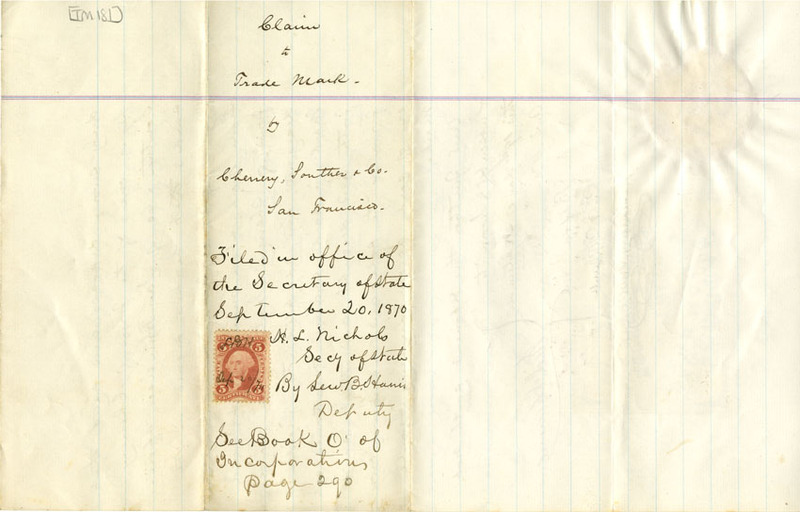 [TM 181]
Claim
to
Trade Mark.
by
Chenery, Souther & Co.
San Francisco.
Filed in office of
the Secretary of State
September 20, 1870
H. L. Nichols
Secy of State
By Lew B. Harris
Deputy
5 5
See Book O of
Incorporations
page 290